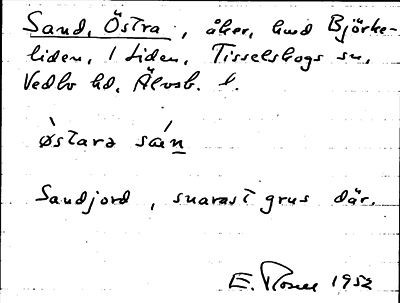 Sand, Östra, åker, hmd Björke-
liden, 1 Liden, Tisselskogs sn,
Vedbo hd, Älvsb. l.
òstara sán
Sandjord, snarast grus där.
E. Rosell 1952